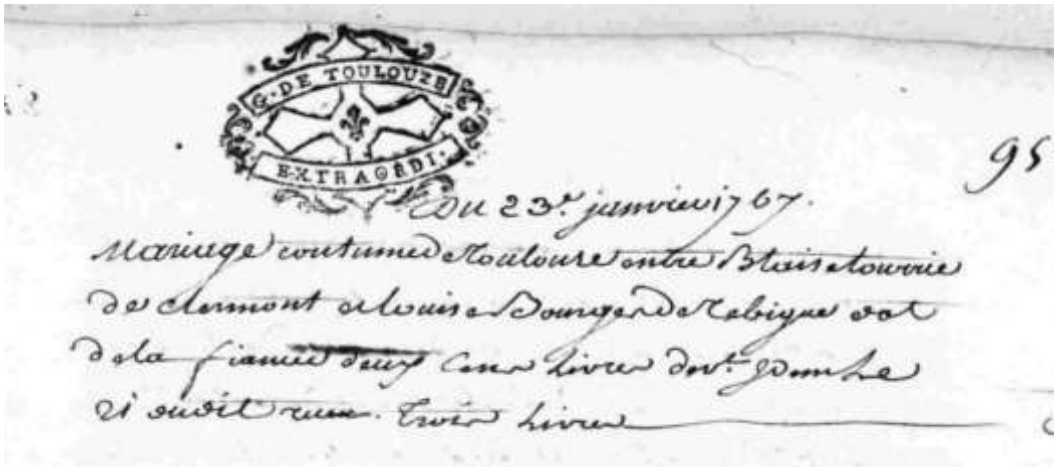 G. DE TOULOUZE
EXTRAORDI.
95
Du 23e. janvier 1767.
Mariage coutume de Toulouse entre Blaise tourrie
de Clermont et louise Bourges de Rebigue dot
de la fiancée deux Cens livres devt.
21 dudit recu. trois livres